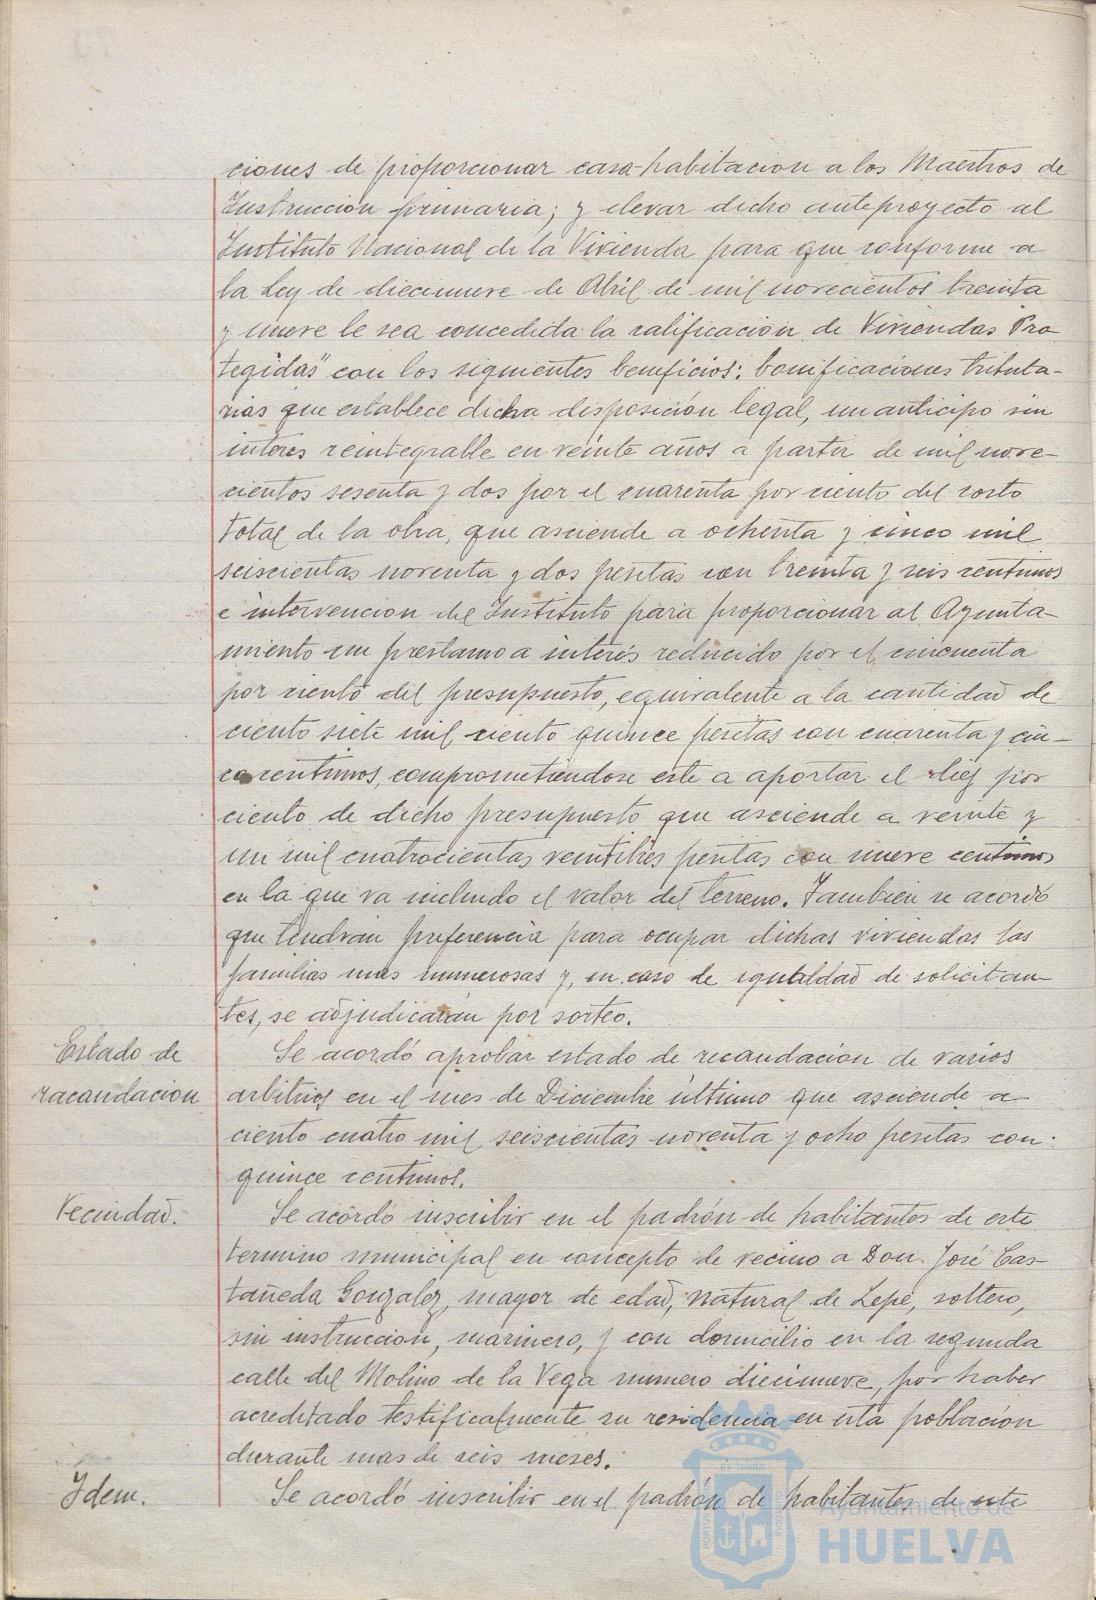 ciones de proporcionar casa-habitacion a los Maestros de
Instruccion primaria; y elevar dicho anteproyecto al
Instituto Nacional de la Vivienda para que conforme a
la Ley de diecinueve de Abril de mil novecientos treinta
y nueve le sea concedida la calificacion de Viviendas Pro-
tegidas" con los siguientes beneficios: bonificaciones tributa-
rias que establece dicha disposición legal, un anticipo sin
interes reintegrable en veinte años a partir de mil nove-
cientos sesenta y dos por el cuarenta por ciento del costo
total de la obra, que asciende a ochenta y cinco mil
seiscientas noventa y dos pesetas con treinta y seis centimos
e intervencion del Instituto para proporcionar al Ayunta-
miento un prestamo a interés reducido por el cincuenta
por ciento del presupuesto, equivalente a la cantidad de
ciento siete mil ciento quince pesetas con cuarenta y cin-
co centimos, comprometiendose este a aportar el diez por
ciento de dicho presupuesto que asciende a veinte y
un mil cuatrocientas veintitrés pesetas con nueve centimos
en la que va incluido el valor del terreno. Tambien se acordó
que tendrán preferencia para ocupar dichas viviendas las
familias mas numerosas y, en caso de igualdad de solicitan-
tes, se adjudicarán por sorteo.
Estado de
racaudacion
Se acordó aprobar estado de recaudacion de varios
arbitrios en el mes de Diciembre último que asciende a
ciento cuatro mil seiscientas noventa y ocho pesetas con
quince centimos.
Vecindad.
Se acordó inscribir en el padrón de habitantes de este
termino municipal en concepto de vecino a Don José Cas-
tañeda Gonzalez, mayor de edad, natural de Lepe, soltero,
sin instruccion, marinero, y con domicilio en la segunda
calle del Molino de la Vega numero diecinueve, por haber
acreditado testificalmente su residencia en esta poblacion
durante mas de seis meses.
Idem.
Se acordó inscribir en el padrón de habitantes de este
Ayuntamiento de
HUELVA